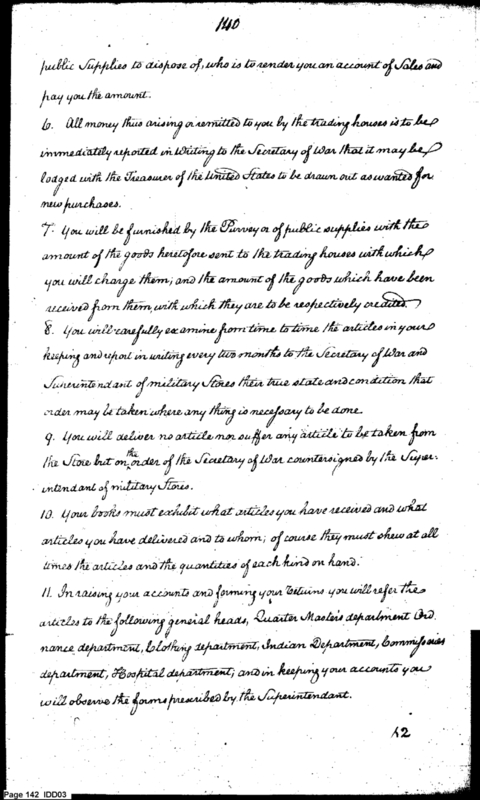 140
public Supplies to dispose of, who is to render you an account of Sales and
pay you the amount.
6. All money thus arising or remitted to you by the trading houses is to be
immediately reported in Writing to the Secretary of War that it may be
lodged with the Treasurer of the United States to be drawn out as wanted for
new purchases.
7. You will be furnished by the Purveyor of public supplies with the
amount of the goods heretofore sent to the trading houses with which
you will charge them; and the amount of the goods which have been
received from them, with which they are to be respectively credited
8. You will carefully examine from time to time the articles in your
keeping and report in writing every two months to the Secretary of War and
Superintendant of military Stores their true state and condition that
order may be taken where any thing is necessary to be done.
9. You will deliver no article nor suffer any article to be taken from
the Store but on the order of the Secretary of War countersigned by the Super-
intendant of military Stores.
10. Your books must exhibit what articles you have received and what
articles you have delivered and to whom; of course they must shew at all
times the articles and the quantities of each kind on hand.
11. In raising your accounts and forming your Returns you will refer the
articles to the following general heads, Quarter Masters department Ord
nance department, Clothing department, Indian Department, Commissaries
department, Hospital department; and in keeping your accounts you
will observe the forms prescribed by the Superintendant.
12
Page 142 IDD03